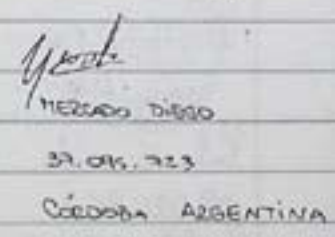 MERCADO DIEGO
37.095.723
CÓRDOBA ARGENTINA